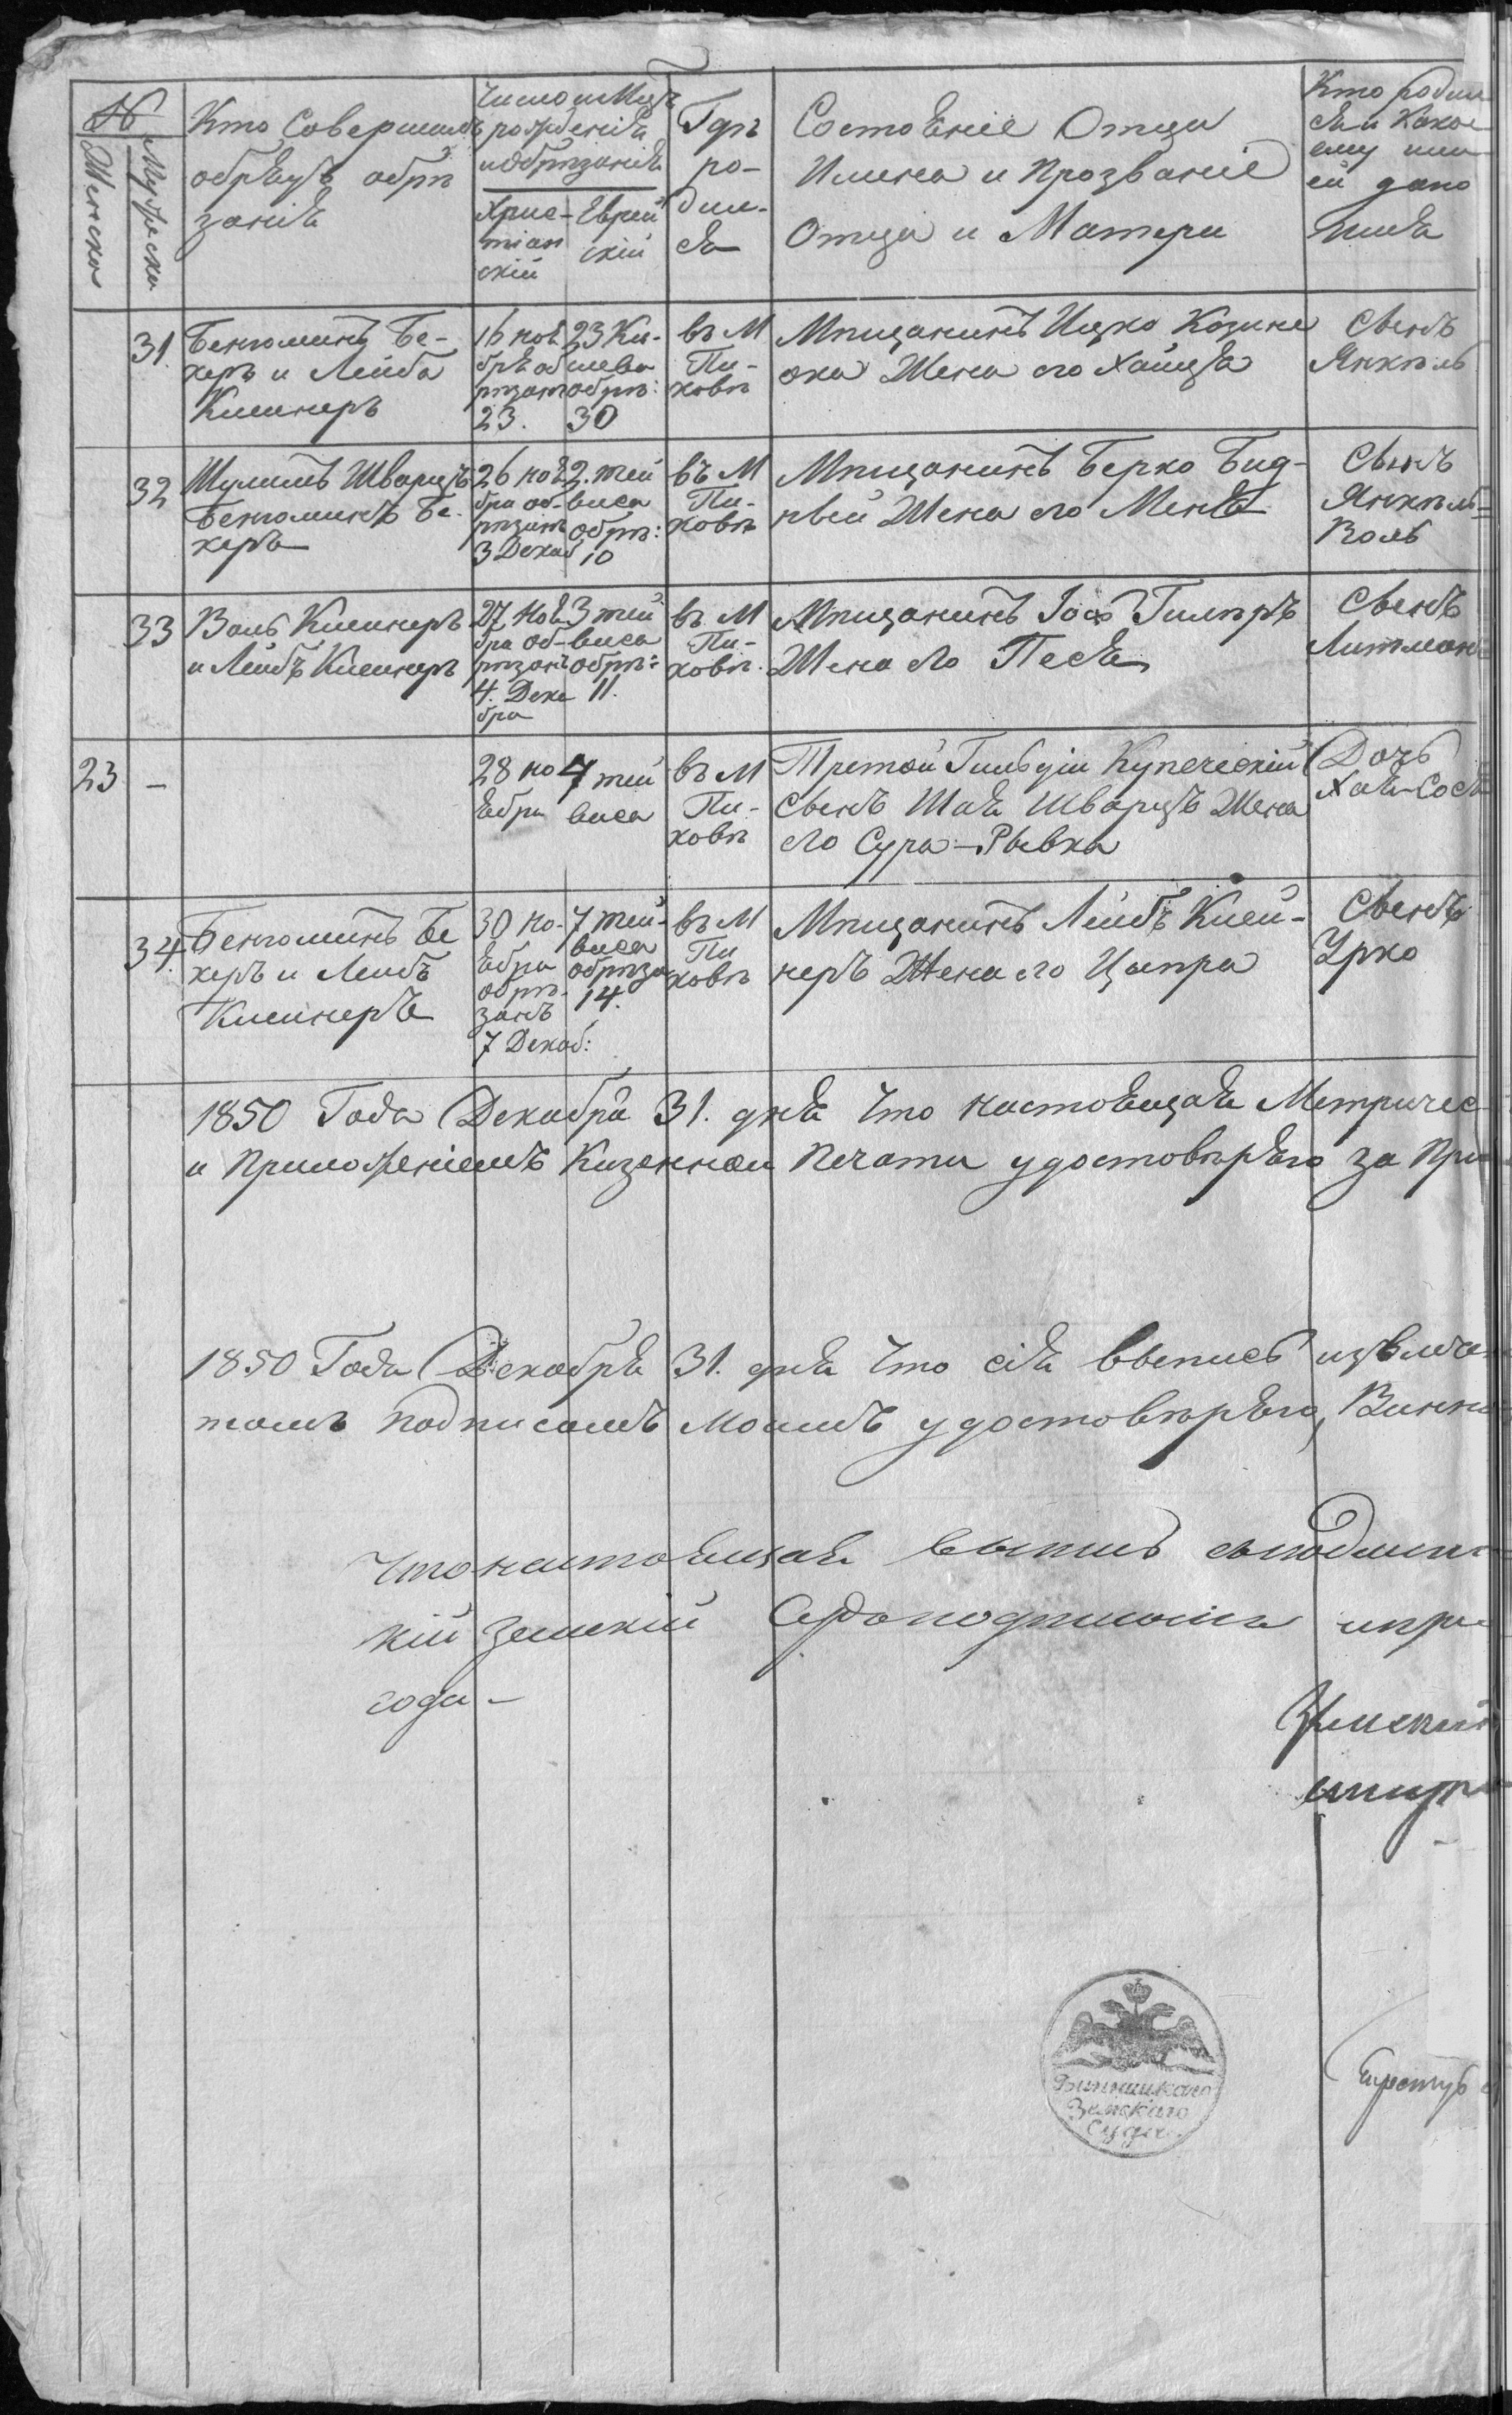 №
Женска
Мужеска
Кто Совершилъ
обрядъ обрѣ
занія
Число и Мцъ
рожденія
и обрѣзанія
Хрис-
тіан
скій
Еврей
скій
Гдѣ
ро-
дил-
ся
Состояніе Отца
Имена и Прозваніе
Отца и Матери
Кто родил
ся и Какое
ему или
ей дано
Имя
31.
Беніоминъ Бе-
керъ и Лейба
Кшеинеръ
16 ноя
бря об
рѣзанъ
23.
23 Ки-
слева
обрѣ:
30
въ М
Пи-
ковѣ
Мѣщанинъ Ицко
Жена его Хайця
Сынъ
Янкѣль
32
Шулимъ Шварцъ
Беніоминъ Бе-
керъ
26 ноя
бра об-
рѣзанъ
3 Декаб
2. тей
виса
обрѣ:
10
въ М
Пи-
ковѣ
Мѣщанинъ Берко Бид-
ней Жена его Меня
Сынъ
Янкѣль=
Воль
33
Воль Кшеинеръ
и Лейбъ Кшеинеръ
27 Ноя
бра об-
рѣзанъ
4. Дека
бра
3 тей
виса
обрѣ:
11.
въ М
Пи-
ковѣ.
Мѣщанинъ Іосъ
Жена его Песя
Сынъ
Литман
23
-
28 но
ября
4 тей
виса
въ М
Пи-
ковѣ
Третой Гильдіи Купеческій
Сынъ Шая Шварцъ Жена
его Сура-Рывка
Дочь
Хая-Сося
34.
Беніоминъ Бе
керъ и Лейбъ
Кшеинеръ
30 но-
ября
обрѣ-
занъ
7 Декаб:
7 тей-
виса
обрѣза
14.
въ М
Пи
ковѣ
Мѣщанинъ Лейбъ Кшеи-
неръ Жена его Ципра
Сынъ
Урко
1850 Года Декабря 31. дня Что настоящая Метричес
и Приложеніемъ Казенной Печати удостовѣряю за При
1850 Года Декабря 31. дня Что сія Выпись извлече
томъ подписомъ Моимъ удостовѣряю, Винни
Что настоящая выпись съ подлин
кій Земскій Судъ подписомъ и при
года -
Земскій
Винницкаго
Земскаго
Суда